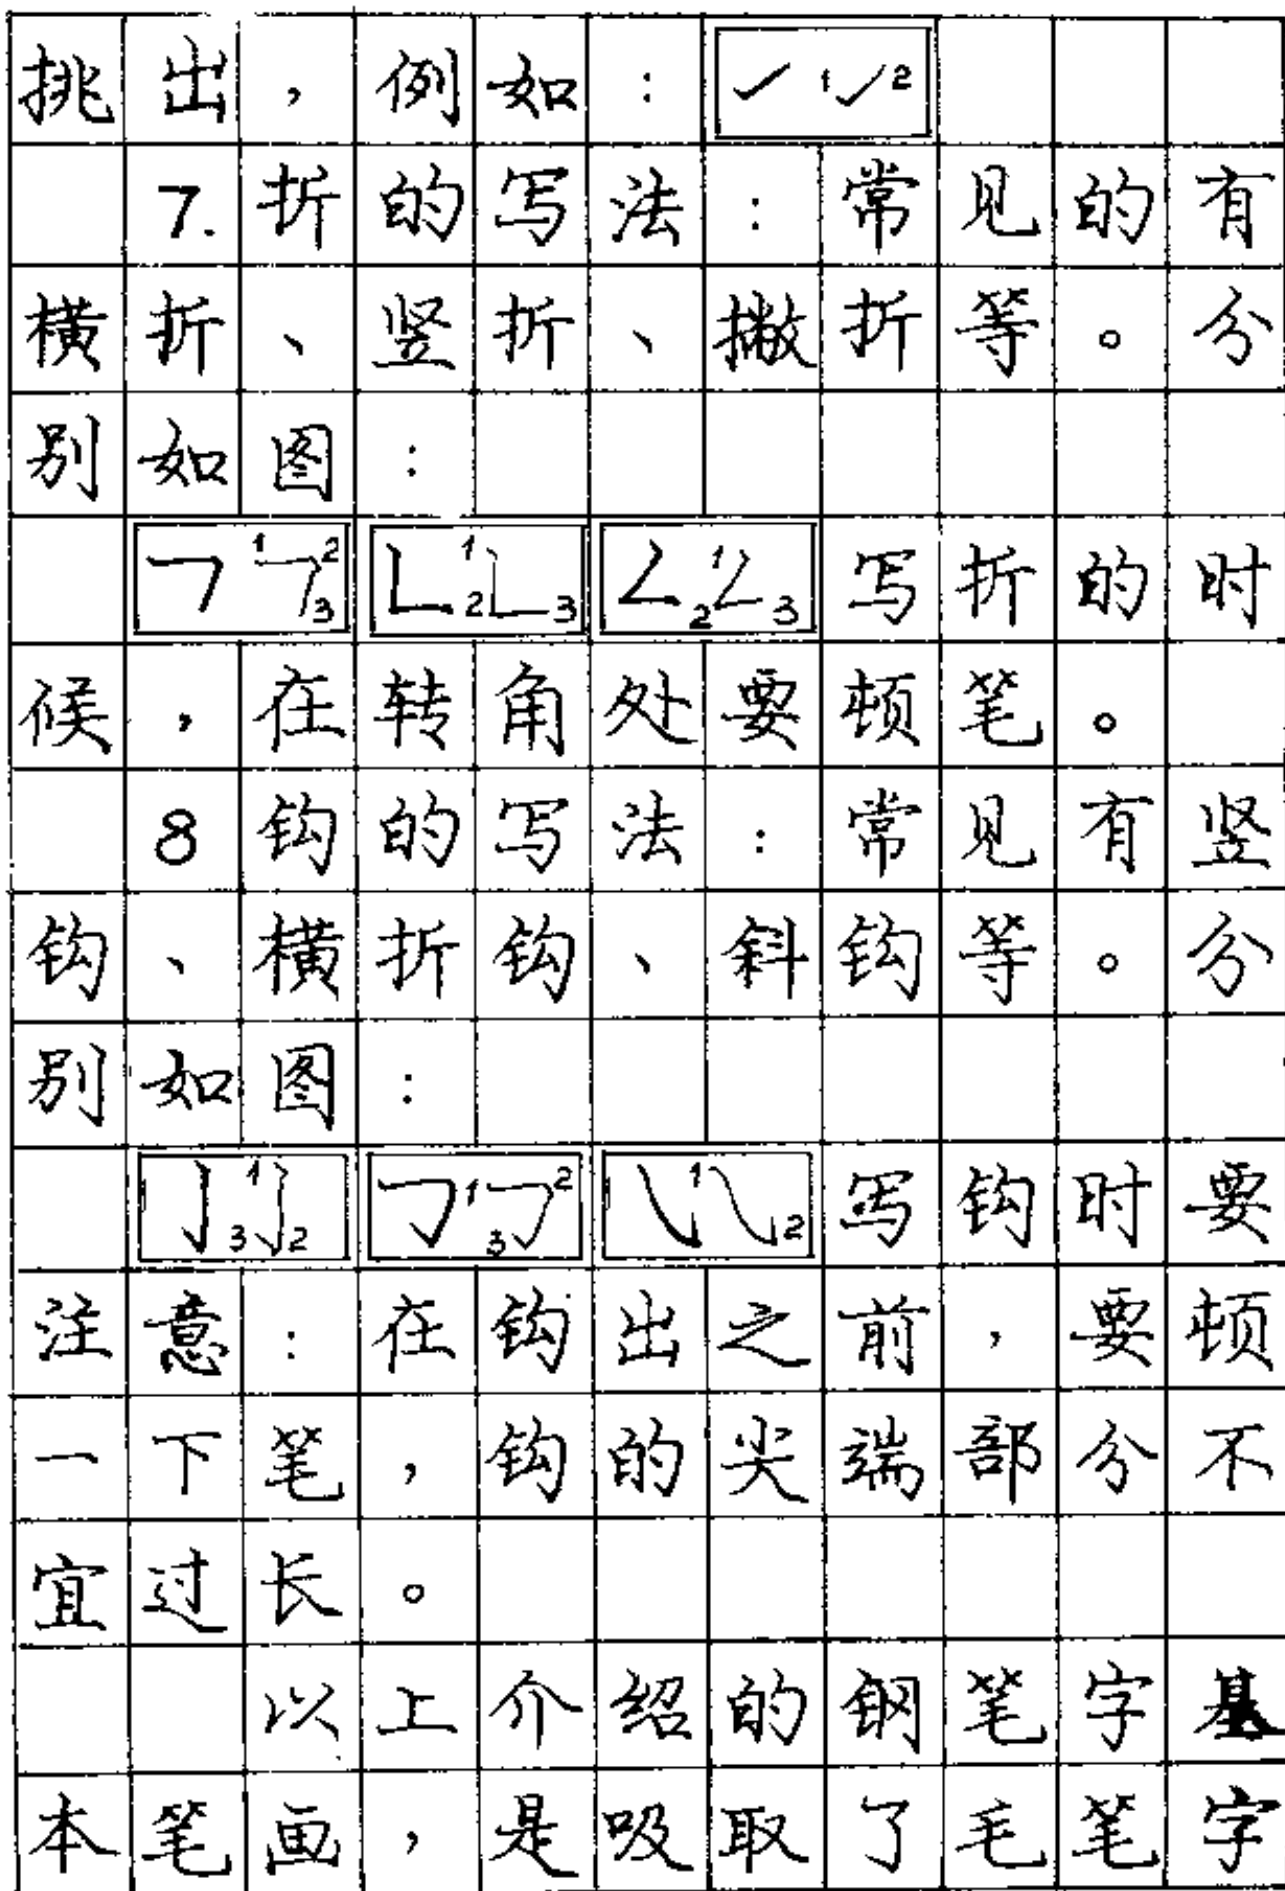 挑出，例如：1 2
7.折的写法：常见的有
横折、竖折、撇折等。分
别如图：
1 2 3 1 2 3 1 2 3 写折的时
候，在转角处要顿笔。
8 钩的写法：常见有竖
钩、横折钩、斜钩等。分
别如图：
1 3 2 1 2 3 1 2 写钩时要
注意：在钩出之前，要顿
一下笔，钩的尖端部分不
宜过长。
以上介绍的钢笔字基
本笔画，是吸取了毛笔字